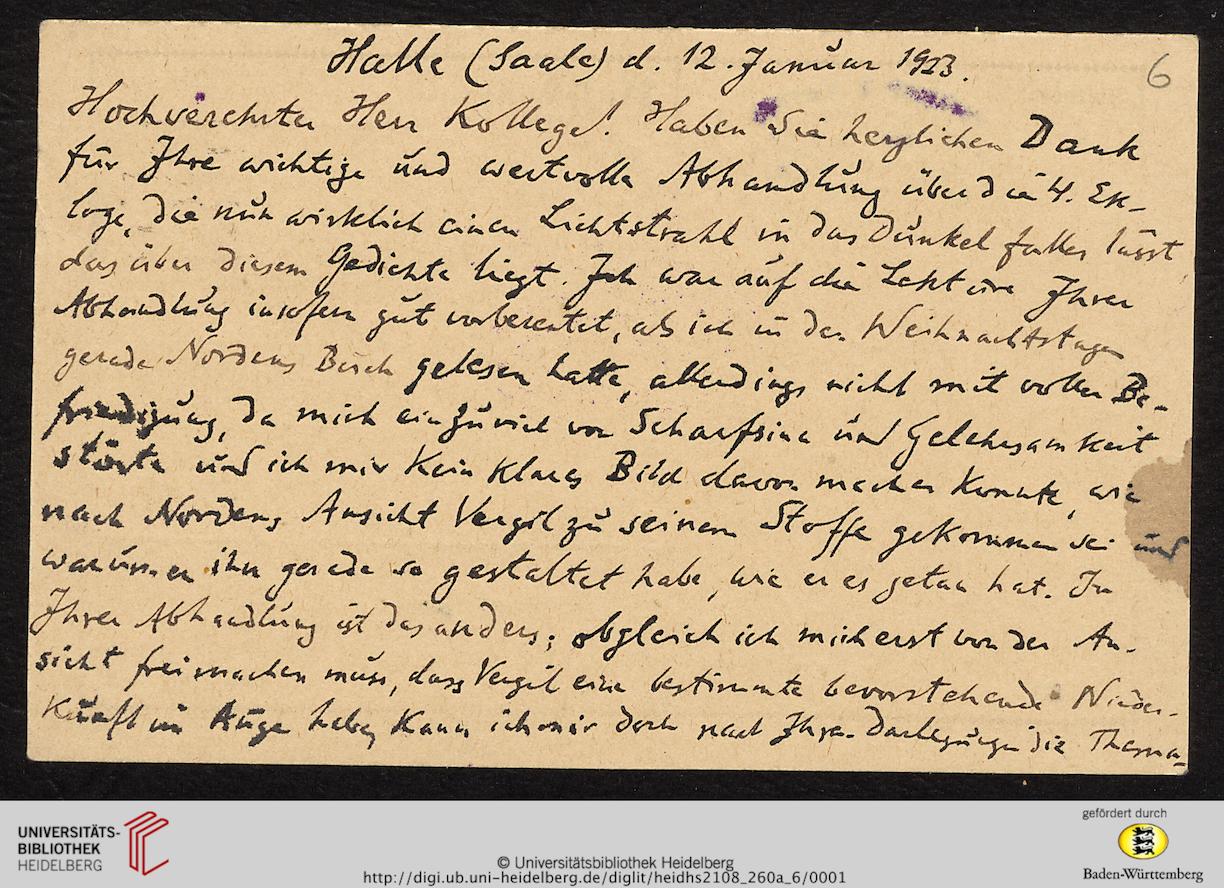 Halle (Saale) d. 12. Januar 1923.
6
Hochverehrter Herr Kollege! Haben Sie herzlichen Dank
für Ihre wichtige und wertvolle Abhandlung über die 4. Ek-
loge, die nun wirklich einen Lichtstrahl in das Dunkel fallen lässt,
das über diesem Gedichte liegt. Ich war auf die Lektüre Ihrer
Abhandlung insofern gut vorbereitet, als ich in den Weihnachtstagen
gerade Nordens Buch gelesen hatte, allerdings nicht mit voller Be-
friedigung, da mich ein Zuviel von Scharfsinn und Gelehrsamkeit
störte und ich mir kein klares Bild davon machen konnte, wie
nach Nordens Ansicht Vergil zu seinem Stoffe gekommen sei und
warum er ihn gerade so gestaltet habe, wie er es getan hat. In
Ihrer Abhandlung ist das anders; obgleich ich mich erst von der An-
sicht freimachen muss, dass Vergil eine bestimmte bevorstehende Nieder-
kunft im Auge habe, kann ich mir doch nach Ihren Darlegungen die Thema-
UNIVERSITÄTS-
BIBLIOTHEK
HEIDELBERG
© Universitätsbibliothek Heidelberg
http://digi.ub.uni-heidelberg.de/diglit/heidhs2108_260a_6/0001
gefördert durch
Baden-Württemberg